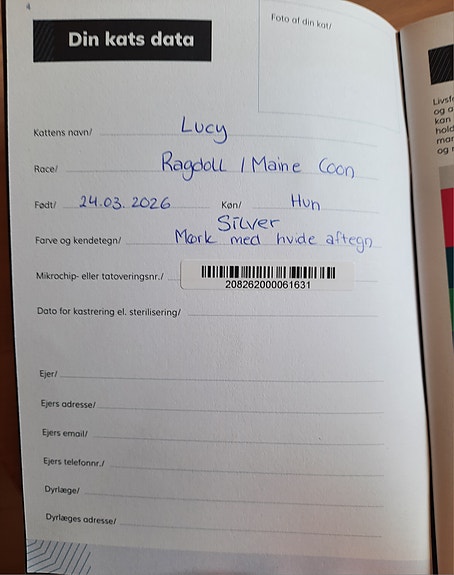 4
Din kats data
Foto af din kat/
Kattens navn/ Lucy
Race/ Ragdoll / Maine Coon
Født/ 24.03.2026 Køn/ Hun
Silver
Farve og kendetegn/ Mørk med hvide aftegn
Mikrochip- eller tatoveringsnr./ 208262000061631
Dato for kastrering el. sterilisering/
Ejer/
Ejers adresse/
Ejers email/
Ejers telefonnr./
Dyrlæge/
Dyrlæges adresse/
og a
kan
hold
mar
og r